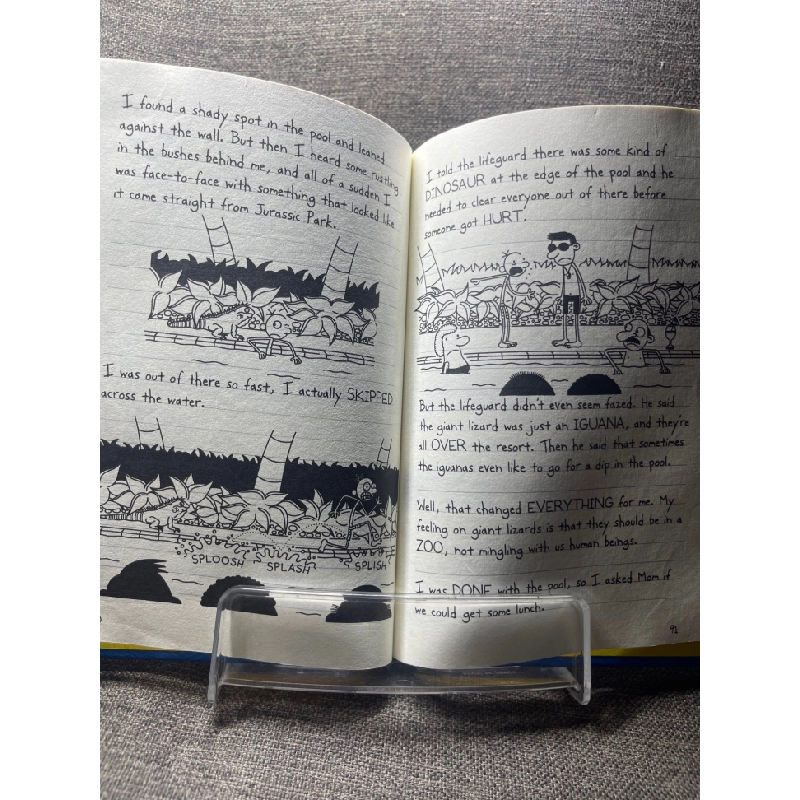 I found a shady spot in the pool and leaned
against the wall. But then I heard some rustling
in the bushes behind me, and all of a sudden I
was face-to-face with something that looked like
it came straight from Jurassic Park.
I was out of there so fast, I actually SKIPPED
across the water.
SPLOOSH SPLASH SPLISH
I told the lifeguard there was some kind of
DINOSAUR at the edge of the pool and he
needed to clear everyone out of there before
someone got HURT.
But the lifeguard didn't even seem fazed. He said
the giant lizard was just an IGUANA, and they're
all OVER the resort. Then he said that sometimes
the iguanas even like to go for a dip in the pool.
Well, that changed EVERYTHING for me. My
feeling on giant lizards is that they should be in a
ZOO, not mingling with us human beings.
I was DONE with the pool, so I asked Mom if
we could get some lunch.
91